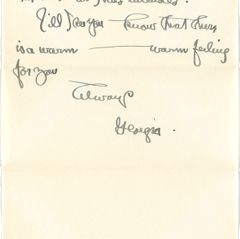 Till I see you — know that there
is a warm — warm feeling
for you
Always
Georgia.